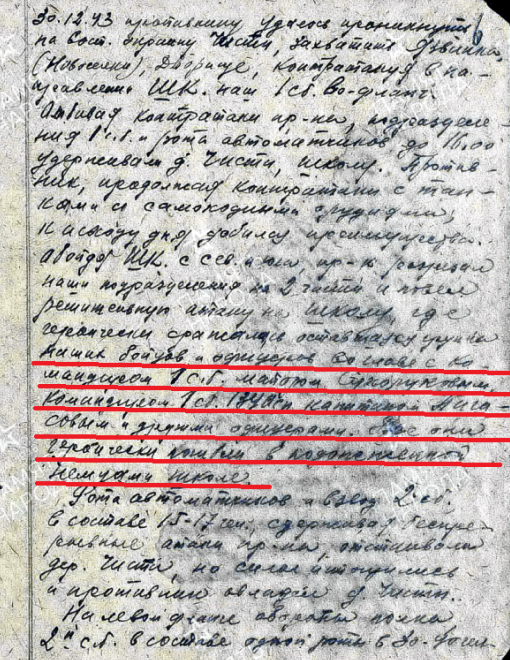 30.12.43 противнику удалось проникнуть
на вост. окраину Чисти, захватить
(Новоселки), Дворище, контратакуя в на-
правлении ШК. наш 1 сб. во фланг.
Отбивая контратаки пр-ка, подразделе
ния 1 с.б. и рота автоматчиков до 16.00
удерживали д. Чисти, школу. Против-
ник, продолжая контратаки с тан-
ками и самоходными орудиями,
к исходу дня добился преимущества.
Обойдя ШК. с сев. и юга, пр-к разрезал
наши подразделения на 2 части и повел
решительную атаку на школу, где
героически сражалась оставшаяся группа
наших бойцов и офицеров во главе с ко-
мандиром 1 с.б. майором Сухоруковым
командиром 1 сб. капитаном
совым и другими офицерами. Все они
героически погибли в подожженной
немцами школе.
Рота автоматчиков и взвод 2 сб.
в составе 15-17 чел, сдерживая беспре-
рывные атаки пр-ка, отстаивали
дер. Чисти, но силы истощились
и противник овладел д. Чисти.
На левом фланге обороны полка
2й с.б. в составе одной роты в 30